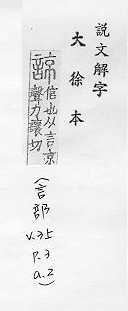 說文解字
大徐本
諒信也从言京
聲力讓切
(言部
v.35
p.3
a.2)